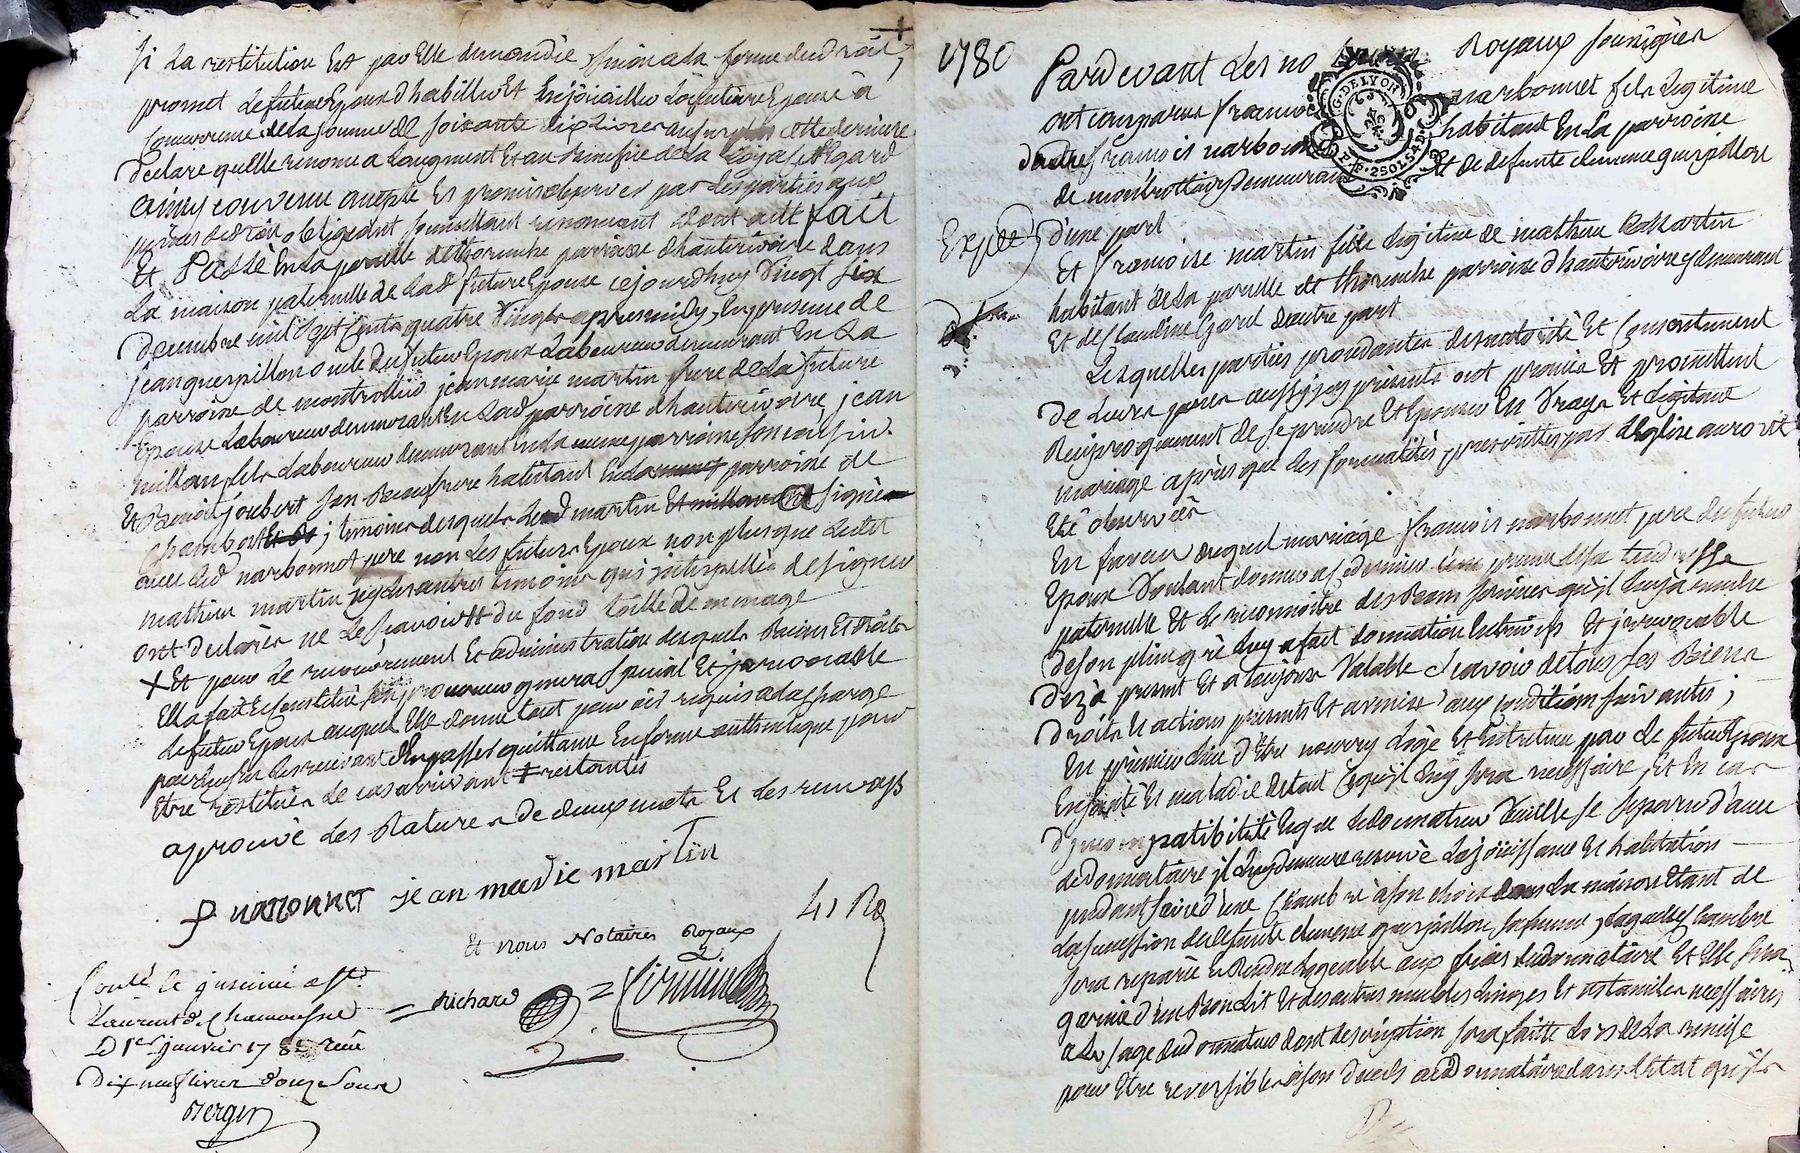 si la restitution est par elle demandée suivant la forme du droit,
promet le futur Epoux d'habiller Et Enjoiailler la future Epouse à
concurrence de la somme de soixante dix livres au surplus cette derniere
declare quelle renonce a Laugment Et au Benefice de la loy a cet Egard
ainsy convenu accepté Et promis observer par les parties aux
peines de droit obligeant soumettant renonceant dont acte fait
Et Passé En la parcelle de thorenche parroisse d'hauterivoire dans
La maison paternelle de lad future Epouse ce jourdhuy Vingt six
decembre mil Sept Cents quatre Vingts apres midy, En presence de
jean guespillon oncle du futur Epoux Laboureur demeurant En La
parroisse de montrottier jean marie martin frere de la future
Epouse Laboureur demeurant En Lad parroisse d'hauterivoire, jean
millan fils Laboureur demeurant En la meme parroisse son cousin
Et Benoit joubert son Beaufrere habitant En la parroisse de
Chambost ; temoins desquels led martin Et signé
avec led narbonnet pere non Les futurs Epoux non plus que Ledit
mathieu martin ny les autres temoins qui interpellés de signer
ont declarés ne Le sçavoir # du fond toille de menage
+ Et pour le recouvrement Et administration desquels Biens Et droits
Elle a fait Et Constitué son procureur general special Et irrevocable
Le futur Epoux auquel Elle donne tout pouvoir requis a la charge
par luy En les recevant d'En passer quittance En forme authentique pour
Etre restitués le cas arrivant + restants
aprouvé Les Ratures de deux mots Et Les renvoys
f narbonnet jean marie martin
Et nous Notaires Royaux
41 R
Conlé Et insinué a St
Laurent de Chamousset
Le 1er janvier 178 reçu
Dix neuf livres douze sous
= Richard =
Berger
1780
Pardevant Les no Royaux soussignés
ont comparus francois narbonnet fils Legitime
d'autre francois narbonnet habitant En La parroisse
de montrottier y demeurant Et de defunte clemence guespillon
Exped
d'une part
Et francoise martin fille Legitime de mathieu martin
habitant de La parcelle de thorenche parroisse d'hauterivoire y demeurant
Et de Claudine Gord d'autre part
Lesquelles parties procedantes de l'autorité Et Consentement
de Leurs peres aussy icy présents ont promis Et promettent
Reciproquement de se prendre Et Epouser En Vraye Et Legitime
mariage après que les formalités prescrittes par L'Eglise auront
Eté observées
En faveur duquel mariage francois narbonnet pere du futur
Epoux Voulant donner a ce dernier une preuve de sa tendresse
paternelle Et Le reconnoitre des Bons services qu'il luy a rendu
de son plein gré luy a fait donnation Entrevifs Et irrevocable
dez à present Et a toujours Valable sçavoir de tous ses Biens
droits Et actions présents Et avenirs aux condition suivantes ;
En premier Lieu d'Etre nourry Logé Et Entretenu par Le futur Epoux
En santé Et maladie de tout Ce qu'il luy sera necessaire, Et En cas
d'incompatibilité Et que le donnateur Veuille se separer d'avec
le donnataire il luy demeure reservé La jouissance Et habitation
pendant sa vie d'une Chambre à son choix dans La maison Etant de
La succession de defunte clemence guespillon sa femme, Laquelle Chambre
sera reparée Et Rendue Logeable aux frais du donnataire Et Elle sera
garnie d'un Bon Lit Et des autres meubles Linges Et ustanciles necessaires
a L'usage du donnateur dont description sera faitte Lors de La remise
pour Etre reversibles à son deces aud donnataire dans L'Etat qu'ils
G. DE LYON
2 SOLS